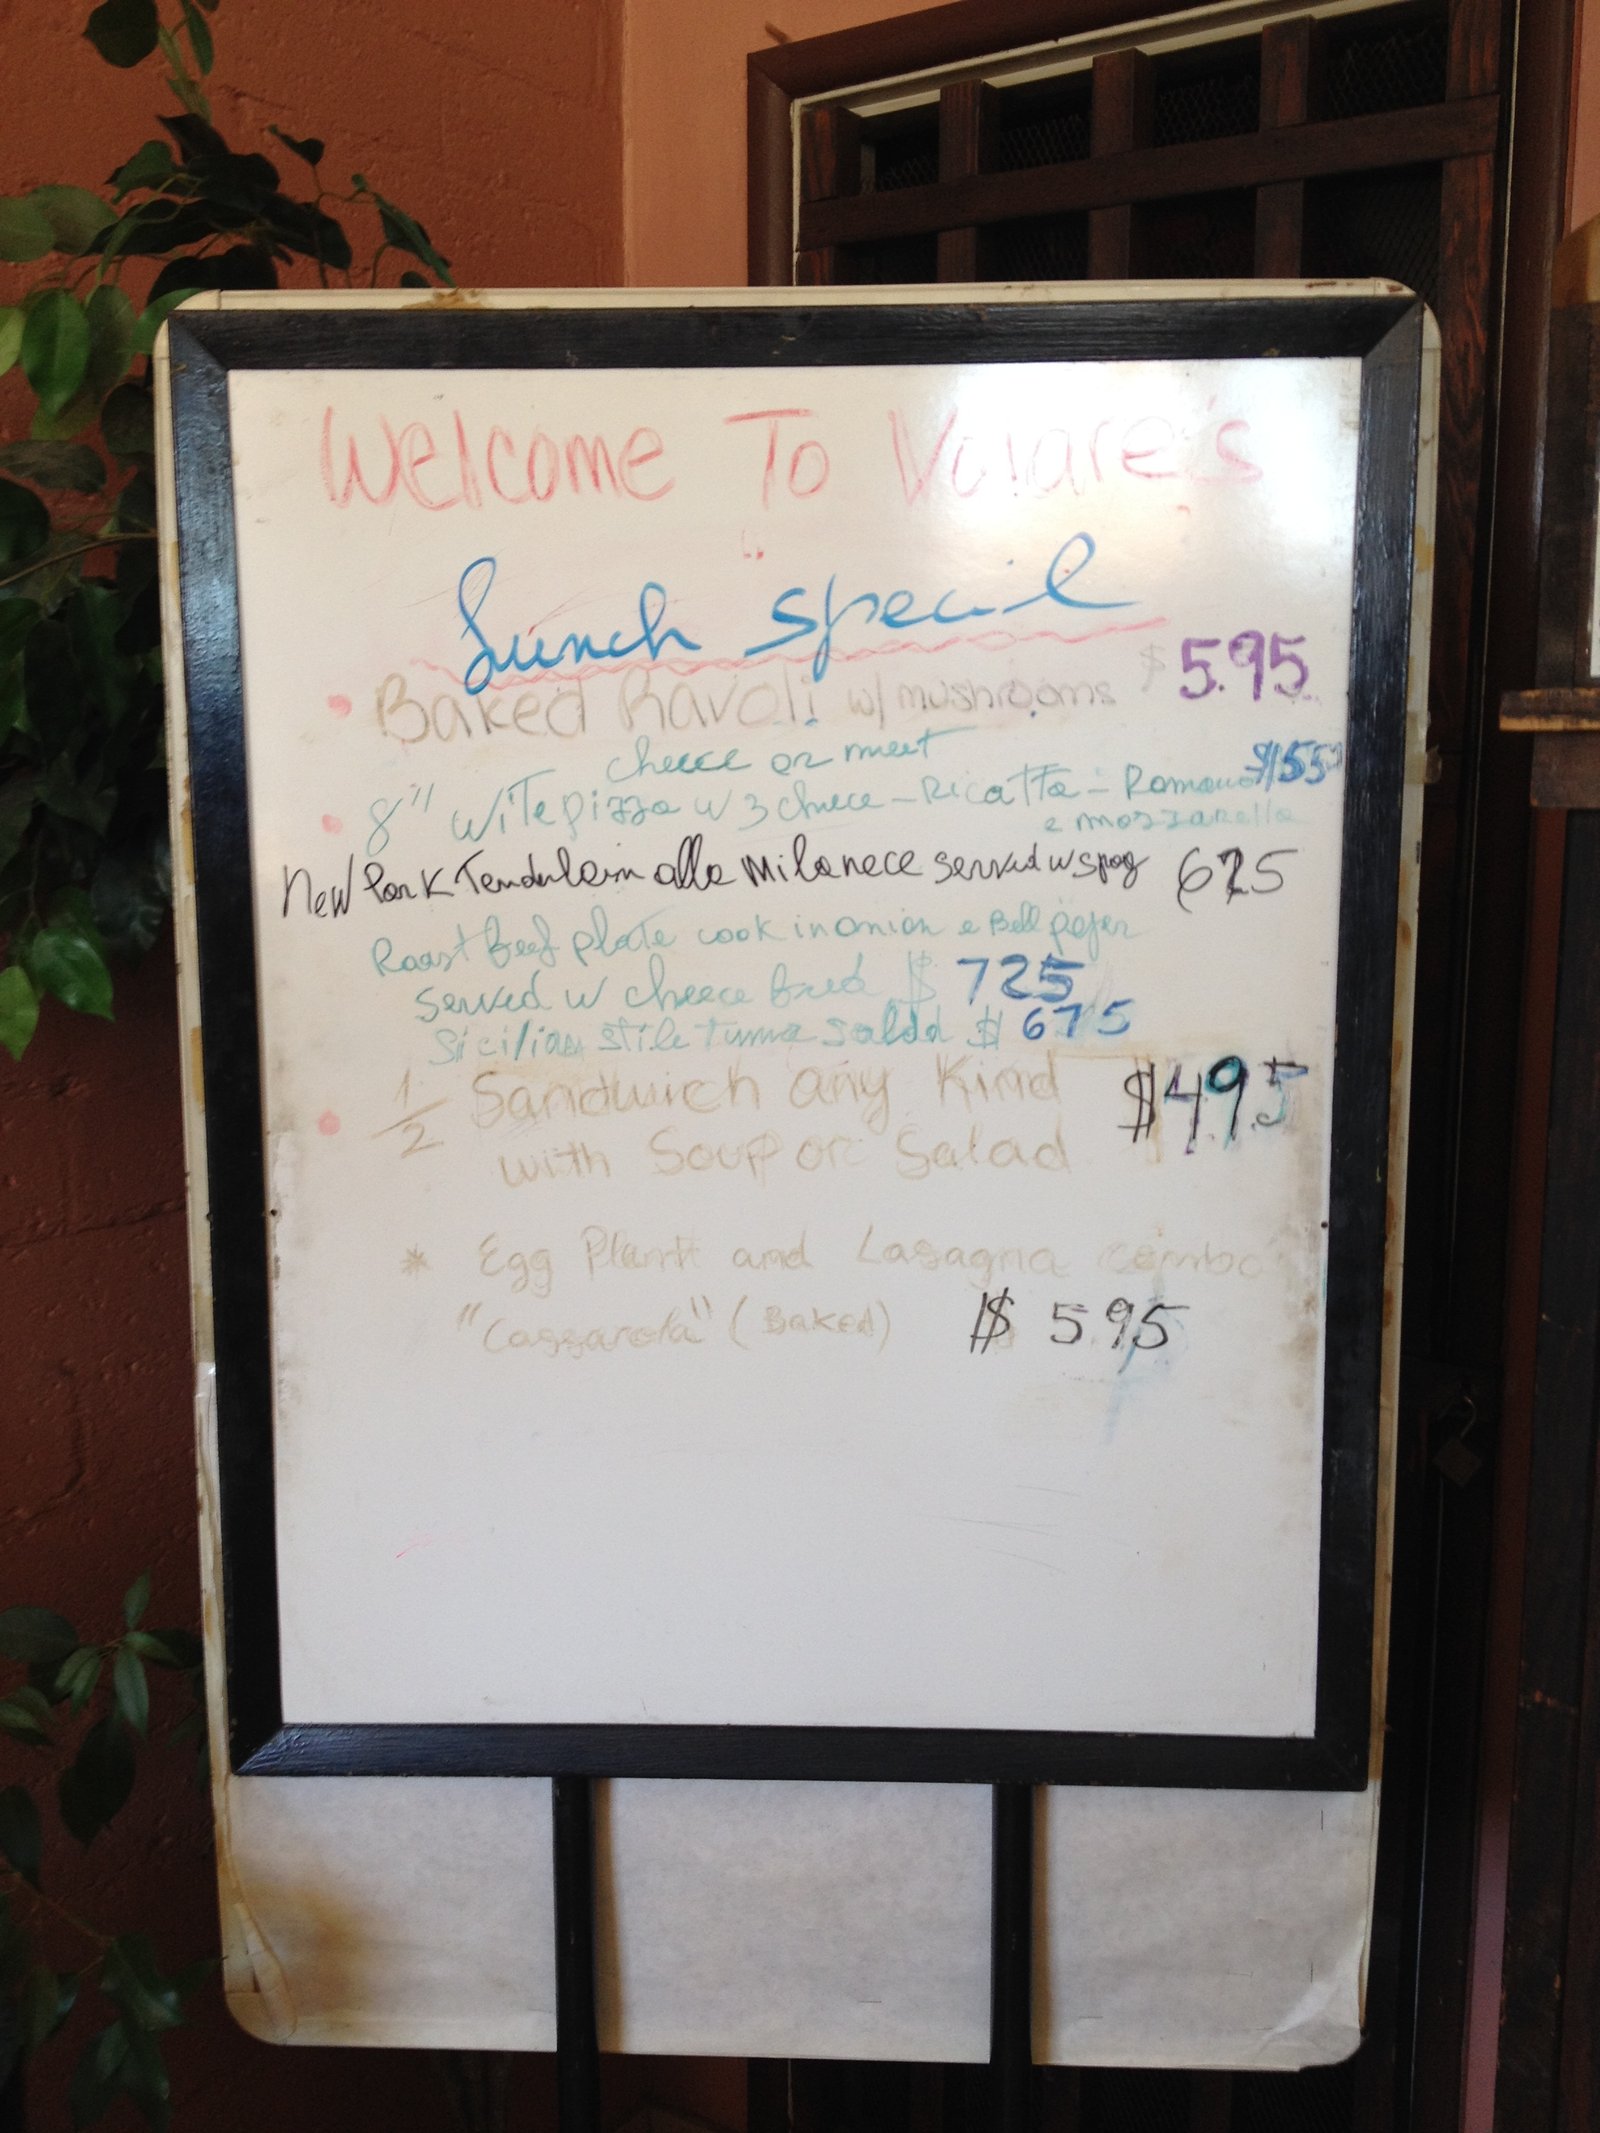 Welcome To Volare's
Lunch Special
Baked Ravoli w/ mushrooms $5.95
cheece or meet
8" wite pizza w 3 cheece - Ricatta - Romano
e mozzarella
New Pork Tenderloin alla Milanece served w spag 625
Roast Beef plate cook in onion e Bell peper
served w cheece bred $ 725
Sicilian stile tuna salad $ 675
1/2 Sandwich any Kind $4.95
with Soup or Salad
* Egg Plant and Lasagna combo
"Cassarola" (Baked) $ 5.95